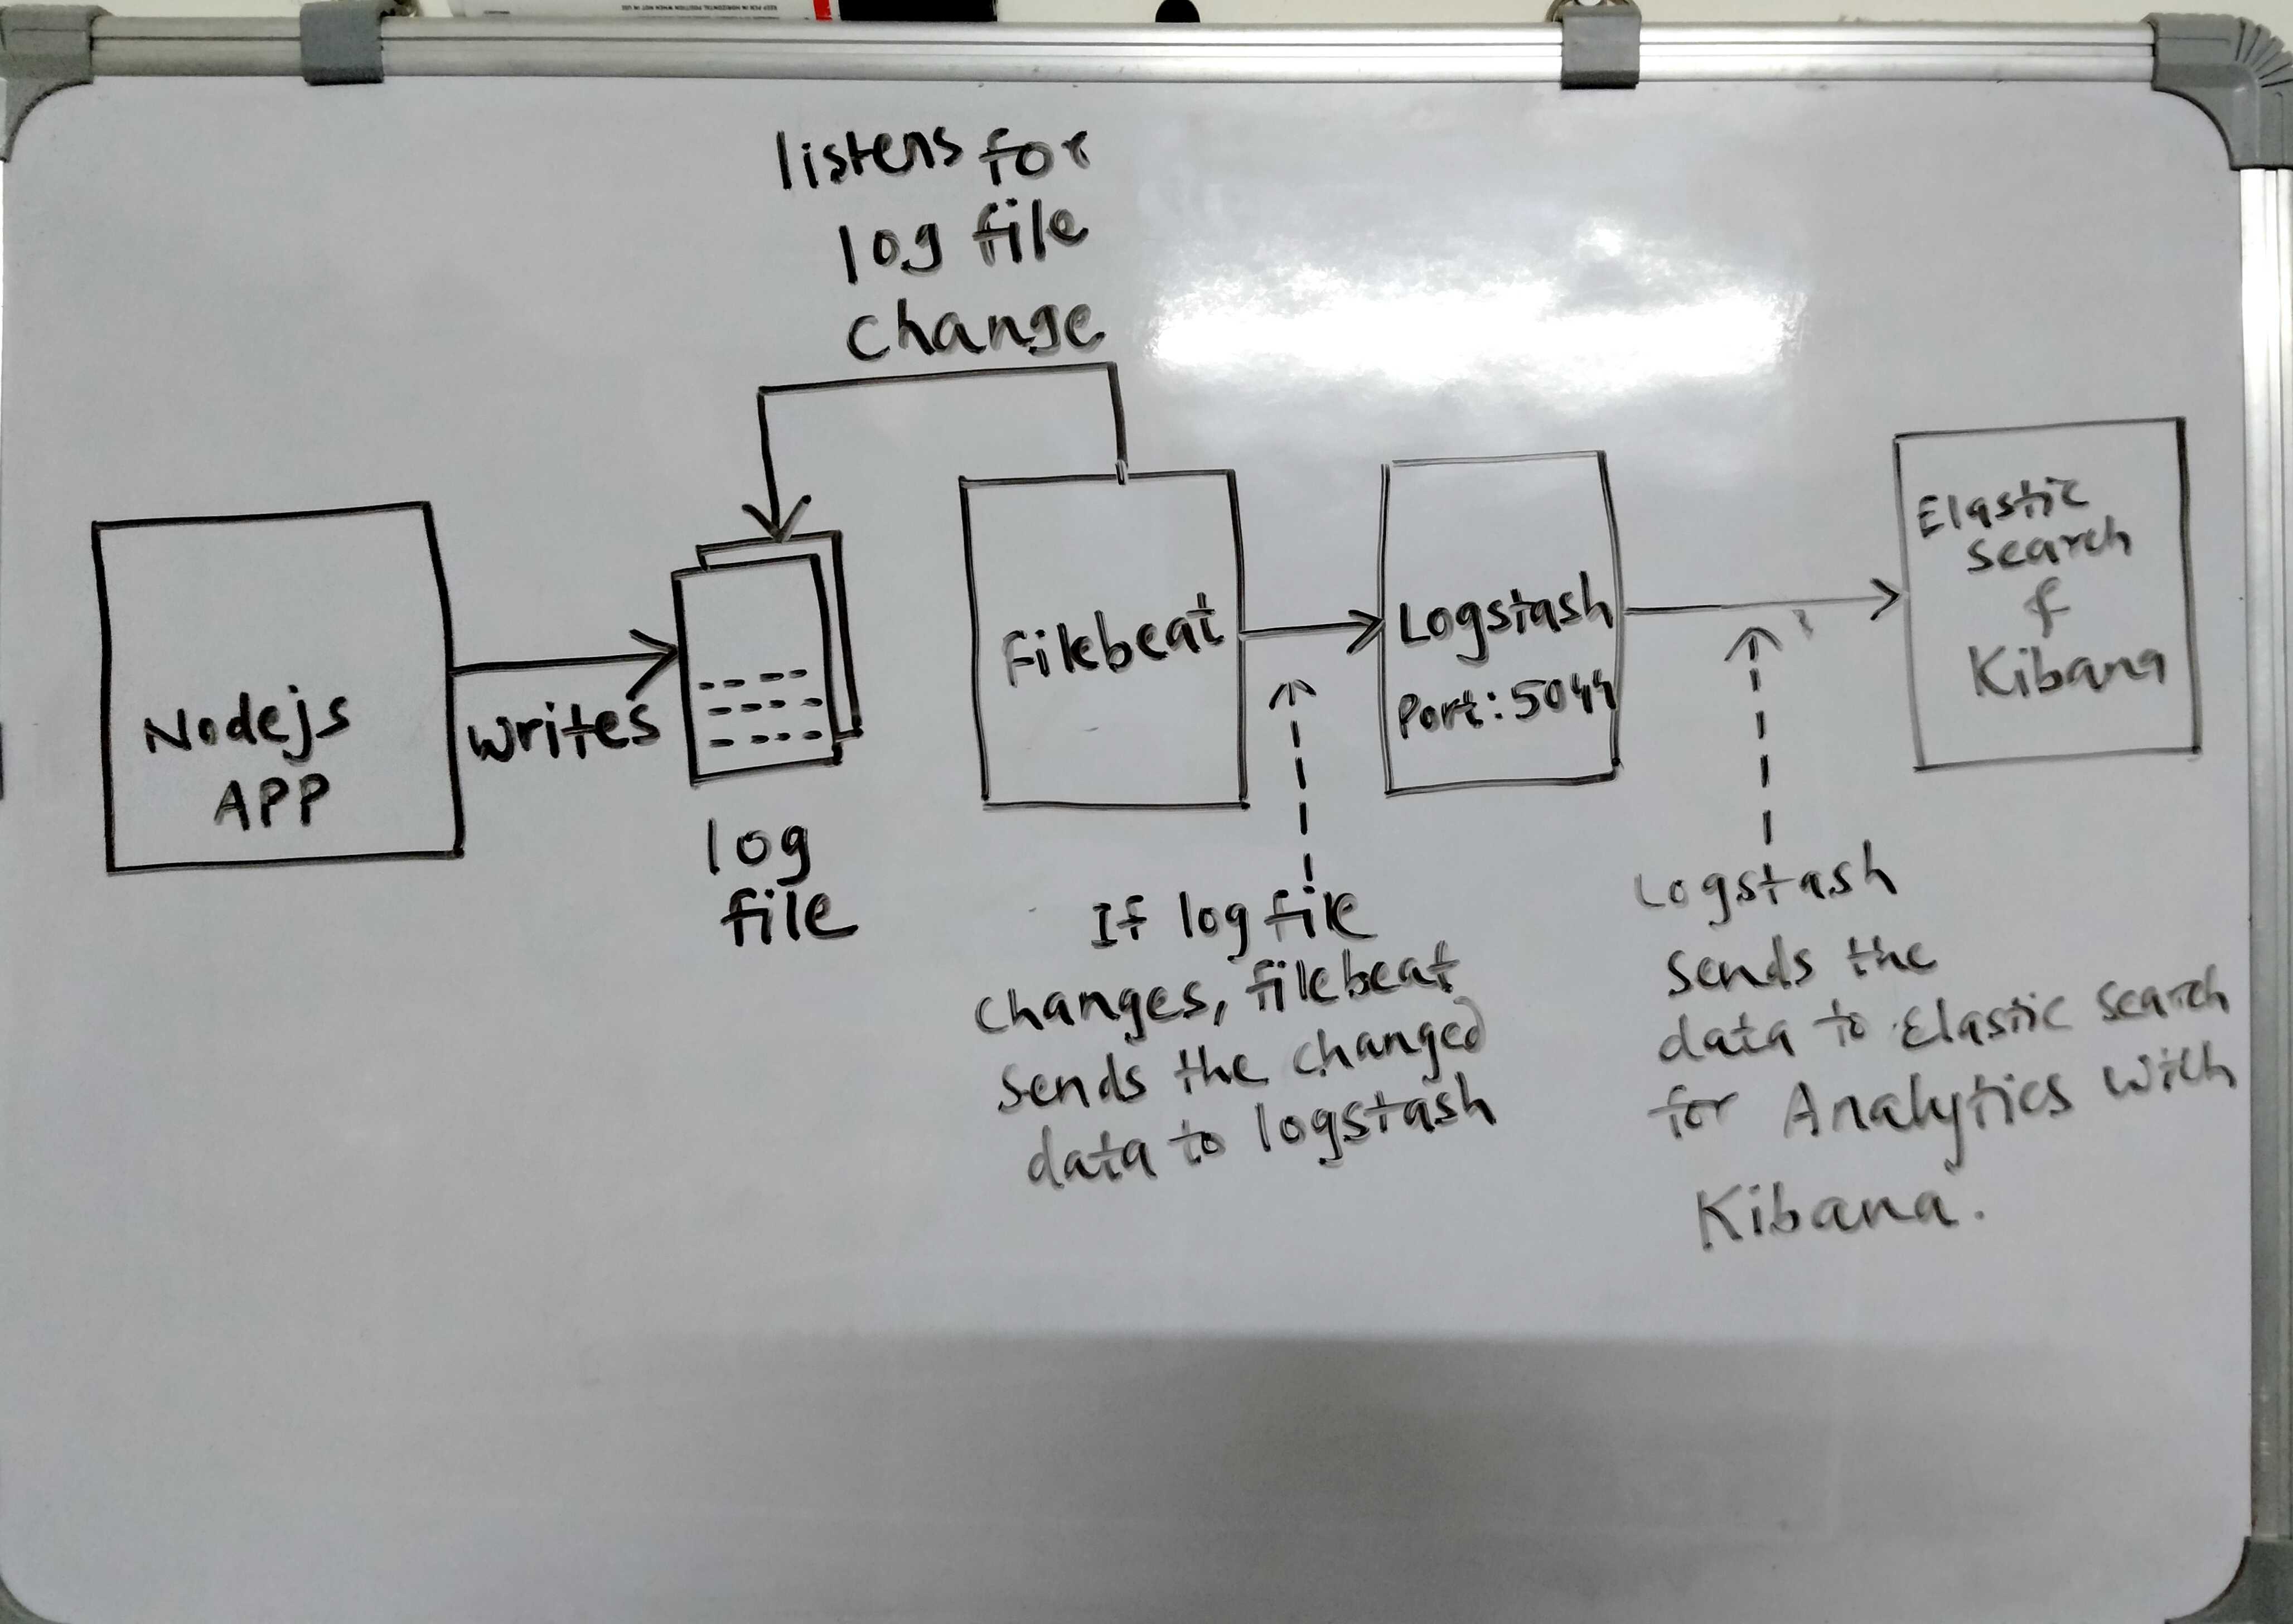 KEEP PEN IN HORIZONTAL POSITION WHEN NOT IN USE
listens for
log file
change
Nodejs
APP
writes
log
file
Filebeat
Logstash
Port:5044
Elastic
Search
&
Kibana
If log file
changes, filebeat
sends the changed
data to logstash
Logstash
sends the
data to Elastic Search
for Analytics with
Kibana.